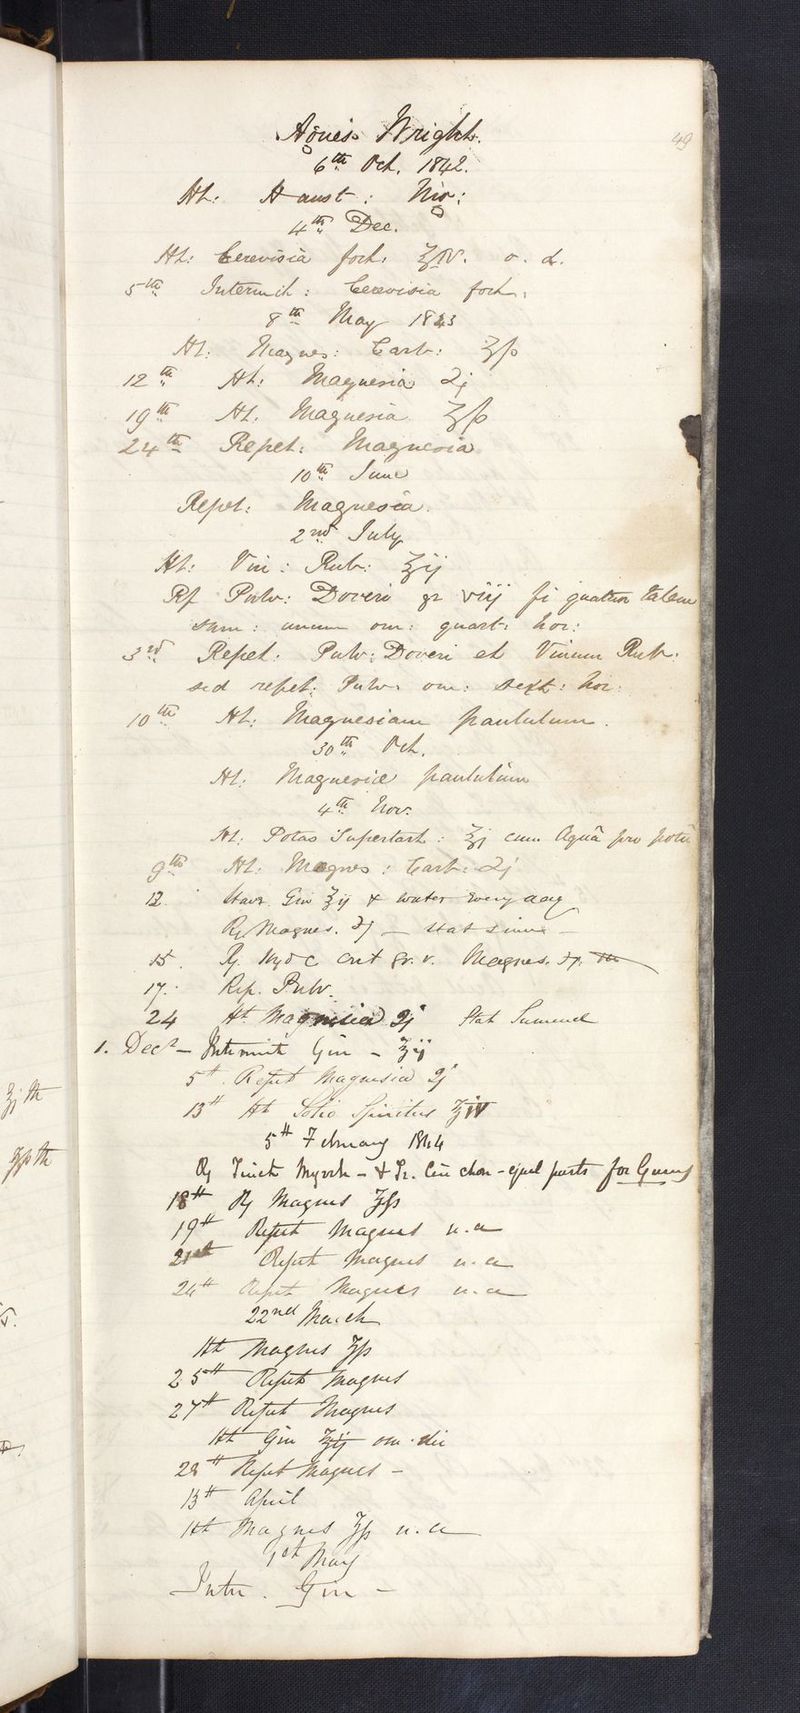 49
Agnes Wright.
6th Oct. 1842.
Ht: Haust: Nig:
4th Dec.
Ht: Cerevisia fort: ℥IV. o. d.
5th Intermit: Cerevisia fort.
8th May 1843
Ht: Magnes: Carb: ℥ß
12th Ht: Magnesia ʒj
19th Ht. Magnesia ℥ß
24th Repet: Magnesia
10th June
Repet: Magnesia.
2nd July
Ht: Vin: Rub: ℥ij
Rp Pulv: Doveri gr viij fi quatuor tales
sum: unum om: quart: hor:
3rd Repet. Pulv: Doveri et Vinum Rub.
sed repet: Pulv: om: sext: hor:
10th Ht: Magnesiam paululum.
30th Oct.
Ht: Magnesiæ paululum
4th Nov.
Ht: Potas Supertart: ℥j cum Aquâ pro potu
9th Ht: Magnes: Carb: ʒj
12 Have Gin ℥ij & water every day
Rx Magnes. ʒj — stat sum
15. Rx Hyd c Cret gr. v. Magnes. ʒj.
17. Rep. Pulv.
24 Ht Magnesia ʒj Stat Sumend
1. Decr — Intermit Gin — ℥ij
5th Repet Magnesia ʒj
13th Ht Lotio Spiritus ℥iv
5th February 1844
Rx Tinct Myrrh — & Tr. Cinchon — equal parts for Gums
18th Rx Magnes ℥ß
19th Repet Magnes u.a
21st Repet Magnes u.a
24th Repet Magnes u.a
22nd March
Ht Magnes ℥ß
25th Repet Magnes
27th Repet Magnes
Ht Gin ℥ij om. die
28th Repet Magnes —
13th April
Ht Magnes ℥ß u.a
1st May
Inter. Gin —